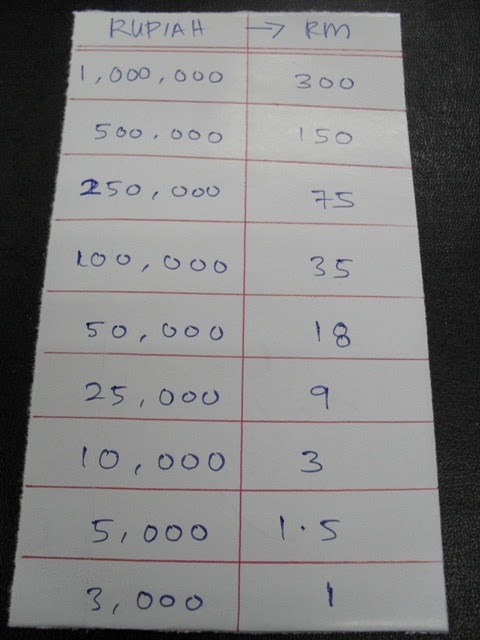 RUPIAH → RM
1,000,000 300
500.000 150
250,000 75
100,000 35
50,000 18
25,000 9
10,000 3
5,000 1.5
3,000 1